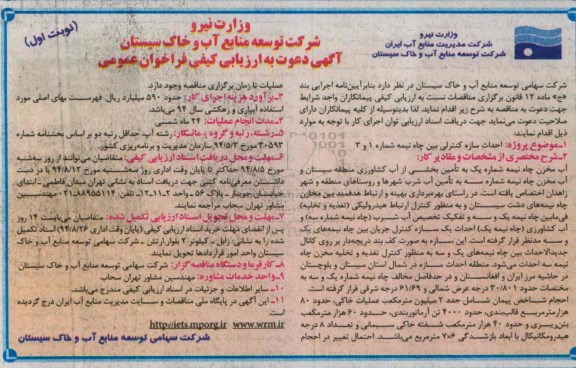 وزارت نیرو
شرکت مدیریت منابع آب ایران
شرکت توسعه منابع آب و خاک سیستان
وزارت نیرو
شرکت توسعه منابع آب و خاک سیستان
آگهی دعوت به ارزیابی کیفی فراخوان عمومی
(نوبت اول)
شرکت سهامی توسعه منابع آب و خاک سیستان در نظر دارد بنابرآیین‌نامه اجرایی بند
«ج» ماده ۱۲ قانون برگزاری مناقصات نسبت به ارزیابی کیفی پیمانکاران واجد شرایط
جهت دعوت به مناقصه به شرح زیر اقدام نماید. لذا بدینوسیله از کلیه پیمانکاران دارای
صلاحیت دعوت می‌نماید جهت دریافت اسناد ارزیابی توان اجرای کار با توجه به موارد
ذیل اقدام نمایند:
۱-موضوع پروژه: احداث سازه کنترلی بین چاه نیمه شماره ۱ و ۳
۲-شرح مختصری از مشخصات و مقادیر کار:
آب مخزن چاه نیمه شماره یک به تأمین بخشی از آب کشاورزی منطقه سیستان و
آب مخزن چاه نیمه شماره سه به تأمین آب شرب شهرها و روستاهای منطقه و شهر
زاهدان اختصاص یافته است. در راستای بهره‌برداری بهینه و ارتباط هدفمند بین مخازن
چاه نیمه‌های دشت سیستان و به منظور کنترل ارتباط هیدرولیکی (تغذیه و تخلیه)
فی‌مابین چاه نیمه یک و سه و تفکیک تخصیص آب شرب (چاه نیمه شماره سه) و
آب کشاورزی (چاه نیمه یک) احداث یک سازه کنترل جریان بین چاه نیمه‌های یک
و سه مدنظر قرار گرفته است. این سازه به صورت کف بند دریچه‌دار بر روی کانال
جدیدالاحداث بین چاه نیمه‌های یک و سه به منظور کنترل تغذیه و تخلیه مخزن چاه
نیمه سه احداث می‌شود. منطقه احداث سازه در شمال استان سیستان و بلوچستان
در حاشیه مرز ایران و افغانستان و در حدفاصل مخالف چاه نیمه شماره یک و سه به
مختصات حدود ۳۰/۸۰۱ درجه عرض شمالی و ۶۱/۶۹ درجه شرقی قرار گرفته است.
احجام شاخص پیمان شامل حدد ۲ میلیون مترمکعب عملیات خاکی، حدود ۸۰
هزارمترمربع قالب‌بندی، حدود ۴۰۰۰ تن آرماتوربندی، حدود ۶۰ هزار مترمکعب
بتن‌ریزی و حدود ۴۰ هزار مترمکعب شفته خاکی سیمانی و تعداد ۸ درجه
هیدرومکانیکال با ابعاد بازشدگی ۶×۷ مترمربع می‌باشد. احتمال تغییر در احجام
عملیات تا زمان برگزاری مناقصه وجود دارد.
۳-برآورد هزینه اجرای کار: حدود ۵۹۰ میلیارد ریال. فهرست بهای اصلی مورد
استفاده آبیاری و زهکشی سال ۹۴ می‌باشد.
۴-مدت انجام عملیات: ۲۴ ماه شمسی
۵-رشته، رتبه و گروه پیمانکار: رشته آب، حداقل رتبه دو بر اساس بخشنامه شماره
۳۰۵۹۳ مورخ ۹۴/۵/۳ سازمان مدیریت و برنامه‌ریزی کشور.
۶-مهلت و محل دریافت اسناد ارزیابی کیفی: متقاضیان می‌توانند از روز سه‌شنبه
مورخ ۹۴/۸/۵ حداکثر تا پایان وقت اداری روز سه‌شنبه مورخ ۹۴/۸/۱۲ با در دست
داشتن معرفی‌نامه کتبی جهت دریافت اسناد به نشانی تهران میدان فاطمی -
۷-مهلت و محل تحویل اسناد ارزیابی تکمیل شده: متقاضیان می‌بایست ۱۴ روز
پس از انقضای مهلت خرید اسناد ارزیابی کیفی (پایان وقت اداری ۹۴/۸/۲۶) اسناد تکمیل
شده را به نشانی: زابل - کیلومتر ۲ بلوار ارتش - شرکت سهامی توسعه منابع آب و خاک
سیستان واحد امور قراردادها تحویل نمایند.
۸-کارفرما و دستگاه مناقصه‌گزار: شرکت سهامی توسعه منابع آب و خاک سیستان
۹-واحد خدمات مشاوره: مهندسین مشاور تهران سحاب
۱۰- سایر اطلاعات و جزئیات در اسناد ارزیابی کیفی مندرج می‌باشد.
۱۱- این آگهی در پایگاه ملی مناقصات و سایت مدیریت منابع آب ایران درج گردیده
است.
http://iets.mporg.ir www.wrm.ir
شرکت سهامی توسعه منابع آب و خاک سیستان